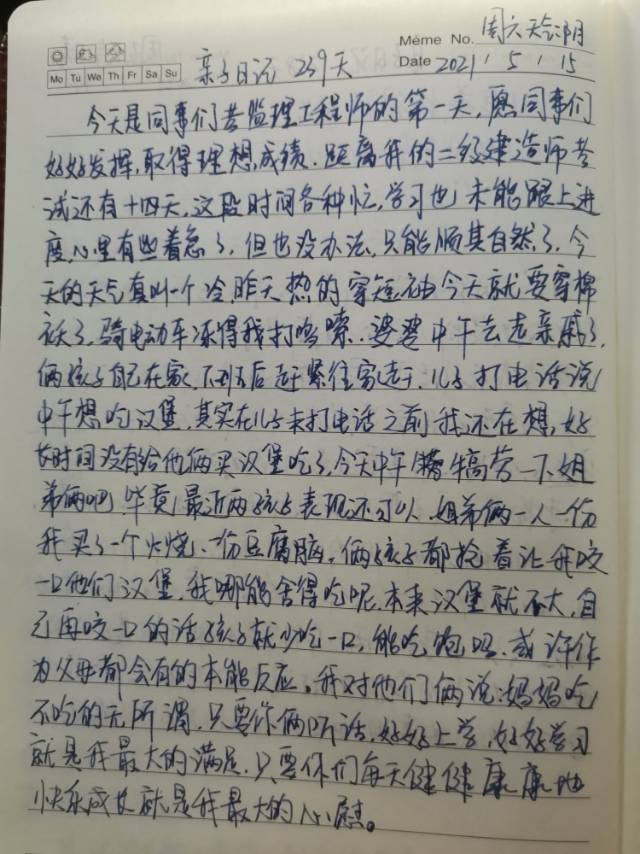 Meme No. 周六天气阴
Mo Tu We Th Fr Sa Su 亲子日记 239天 Date 2021.5.15
今天是同事们考监理工程师的第一天,愿同事们
好好发挥,取得理想成绩.距离我的二级建造师考
试还有十四天,这段时间各种忙,学习也未能跟上进
度,心里有些着急了,但也没办法,只能顺其自然了.今
天的天气真叫一个冷,昨天热的穿短袖今天就要穿棉
袄了,骑电动车冻得我打哆嗦.婆婆中午去走亲戚了,
俩孩子自己在家,下班后赶紧往家赶,儿子打电话说
中午想吃汉堡,其实在儿子未打电话之前我还在想,好
长时间没有给他俩买汉堡吃了,今天中午犒劳一下姐
弟俩吧,毕竟最近两孩子表现还可以.姐弟俩一人一份
我买了一个火烧、一份豆腐脑,俩孩子都抢着让我咬
一口他们汉堡,我哪能舍得吃呢,本来汉堡就不大,自
己再咬一口的话孩子就少吃一口,能吃饱吗.或许作
为父母都会有的本能反应。我对他们俩说:妈妈吃
不吃的无所谓,只要你俩听话,好好上学,好好学习
就是我最大的满足,只要你们每天健健康康地
快乐成长就是我最大的心慰。